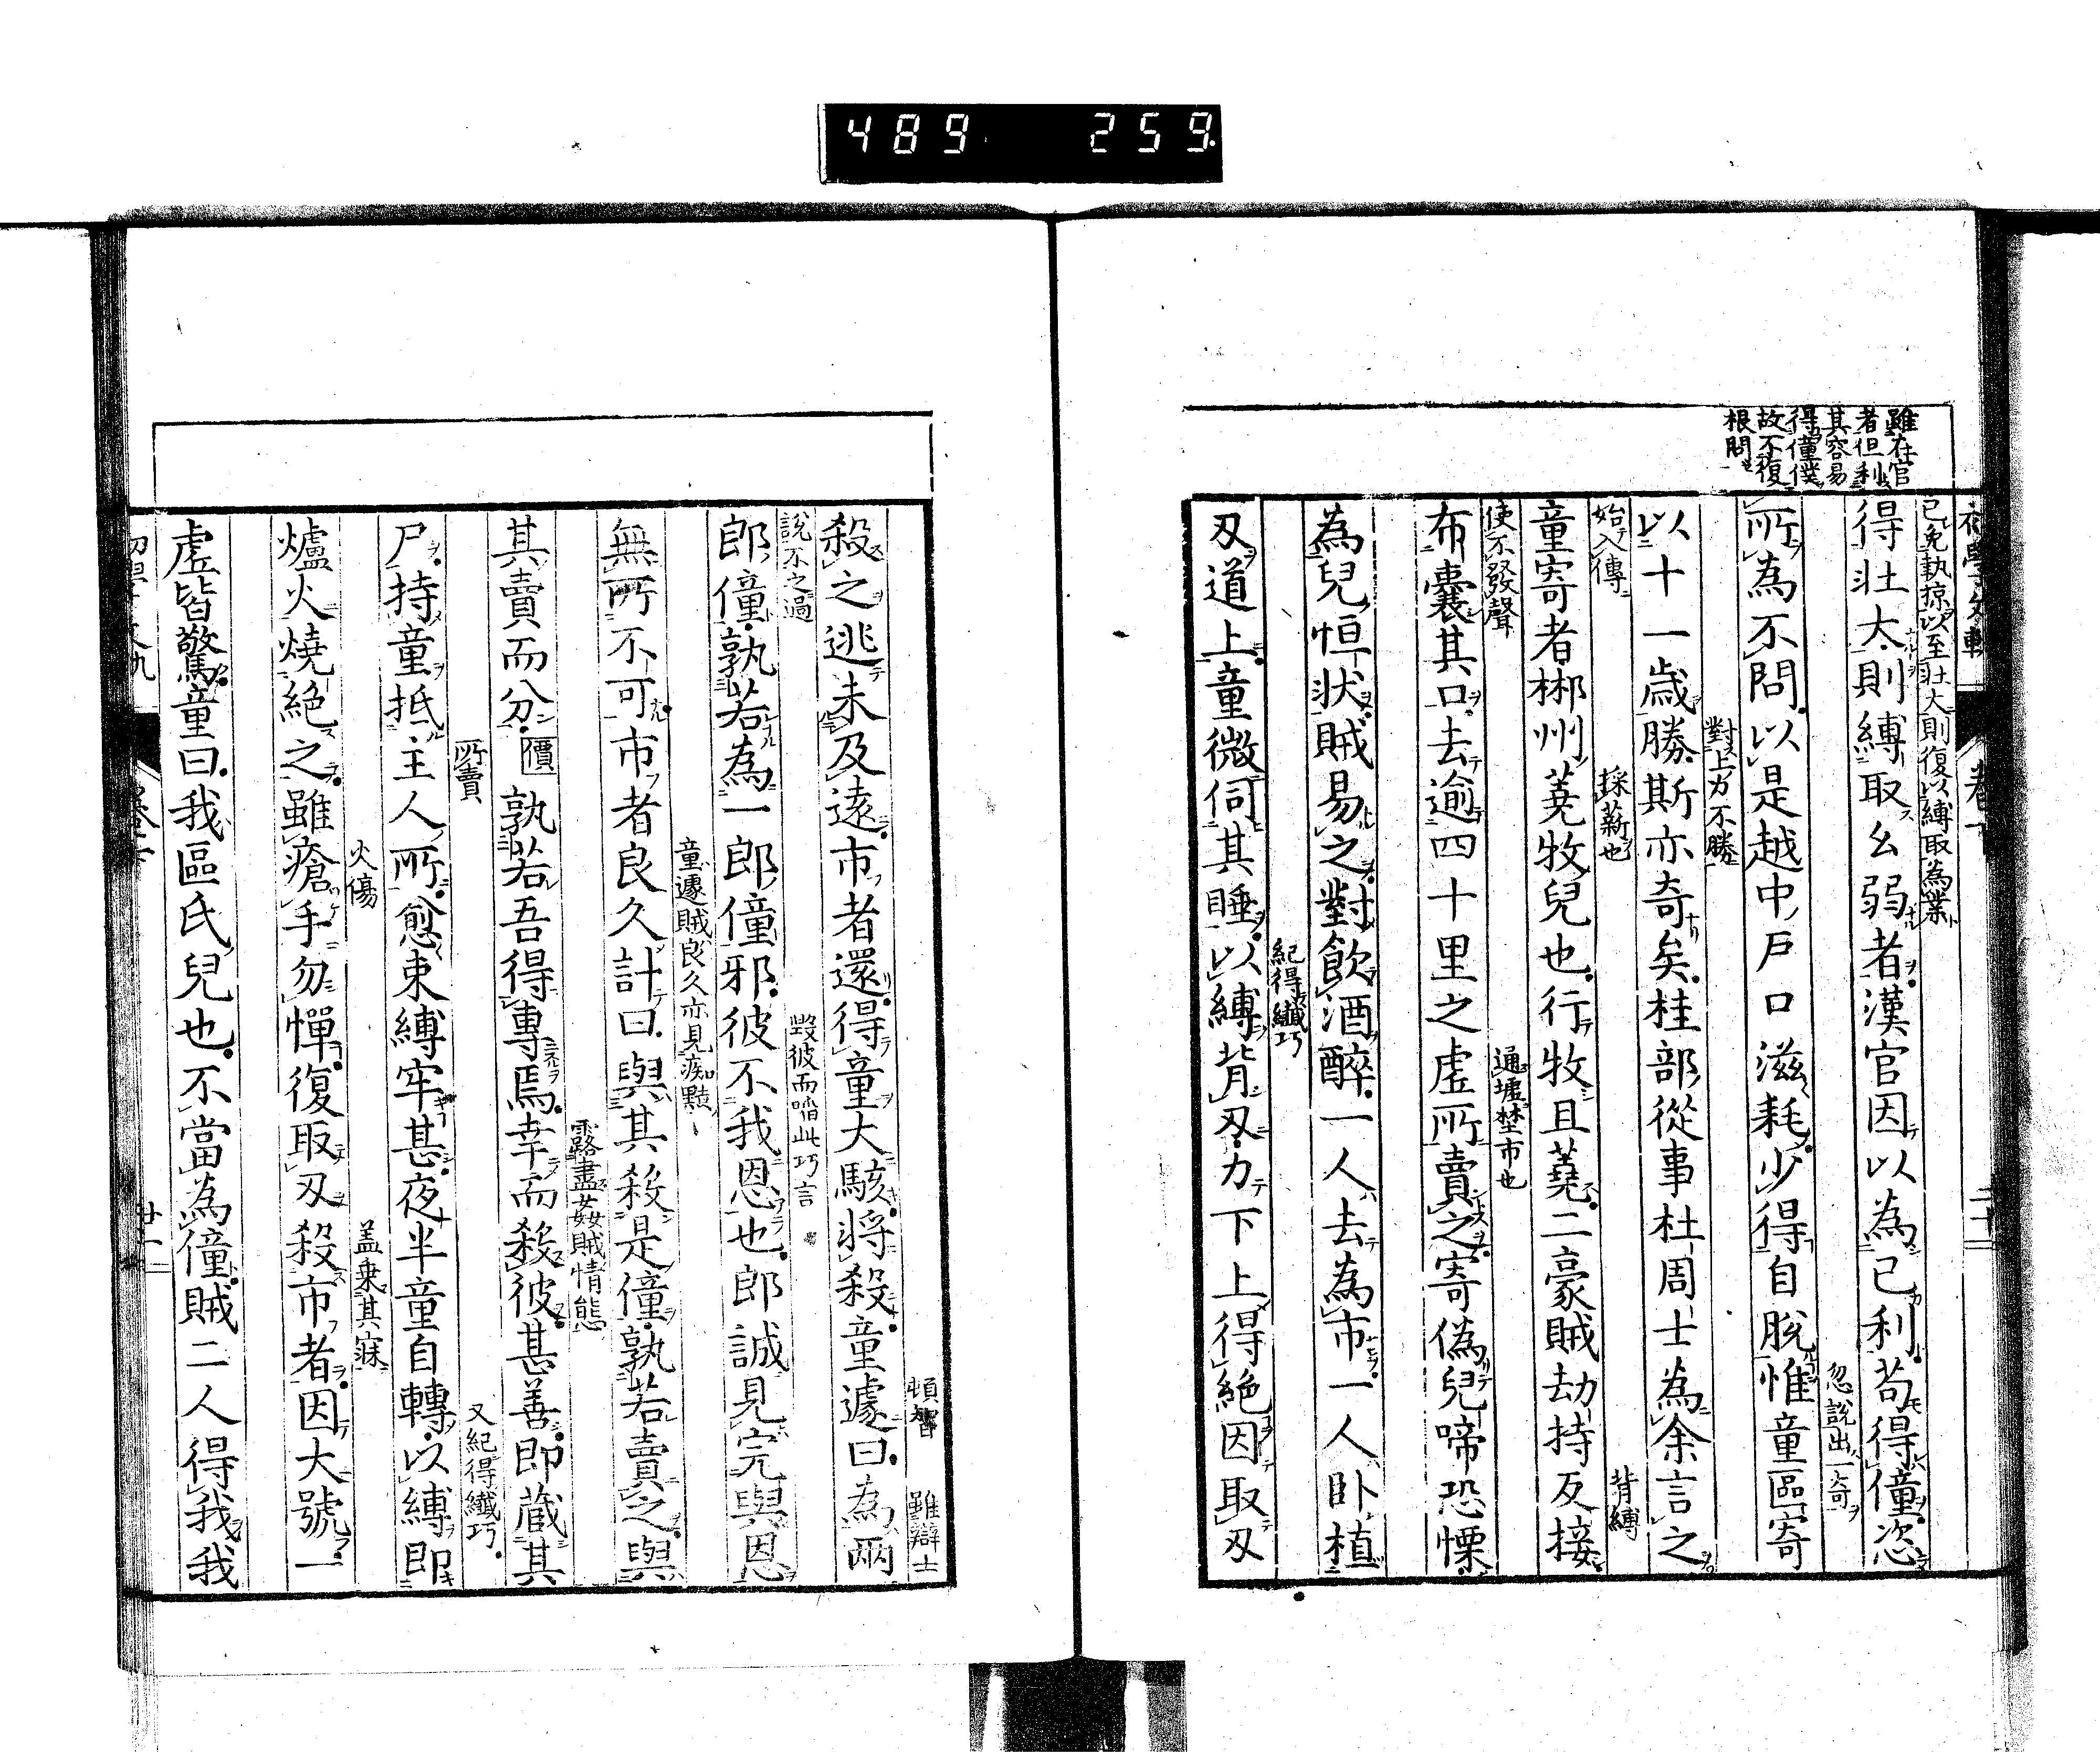 489 259
雖在官
者但利
其容易
得僮僕
故不復
根問
卷下
二十一
已免執掠以至壯大則復以縛取為業
得壯大則縛取幺弱者漢官因以為己利苟得僮恣
忽說出一奇
所為不問以是越中戶口滋耗少得自脫惟童區寄
對上力不勝
以十一歲勝斯亦奇矣桂部從事杜周士為余言之
始入傳 採薪也 背縛
童寄者郴州蕘牧兒也行牧且蕘二豪賊劫持反接
使不發聲 通墟埜市也
布囊其口去逾四十里之虛所賣之寄偽兒啼恐慄
為兒恒狀賊易之對飲酒醉一人去為市一人臥植
紀得纖巧
刃道上童微伺其睡以縛背刃力下上得絕因取刃
頓智 雖辯士
殺之逃未及遠市者還得童大駭將殺童遽曰為兩
說不之過 毀彼而啗此巧言
郎僮孰若為一郎僮邪彼不我恩也郎誠見完與恩
童遽賊良久亦見痴黠
無所不可市者良久計曰與其殺是僮孰若賣之與
露盡姦賊情態
其賣而分價孰若吾得專焉幸而殺彼甚善即藏其
所賣 又紀得纖巧
尸持童抵主人所愈束縛牢甚夜半童自轉以縛即
火傷 盖乗其寐
爐火燒絕之雖瘡手勿憚復取刃殺市者因大號一
虛皆驚童曰我區氏兒也不當為僮賊二人得我我
廿一